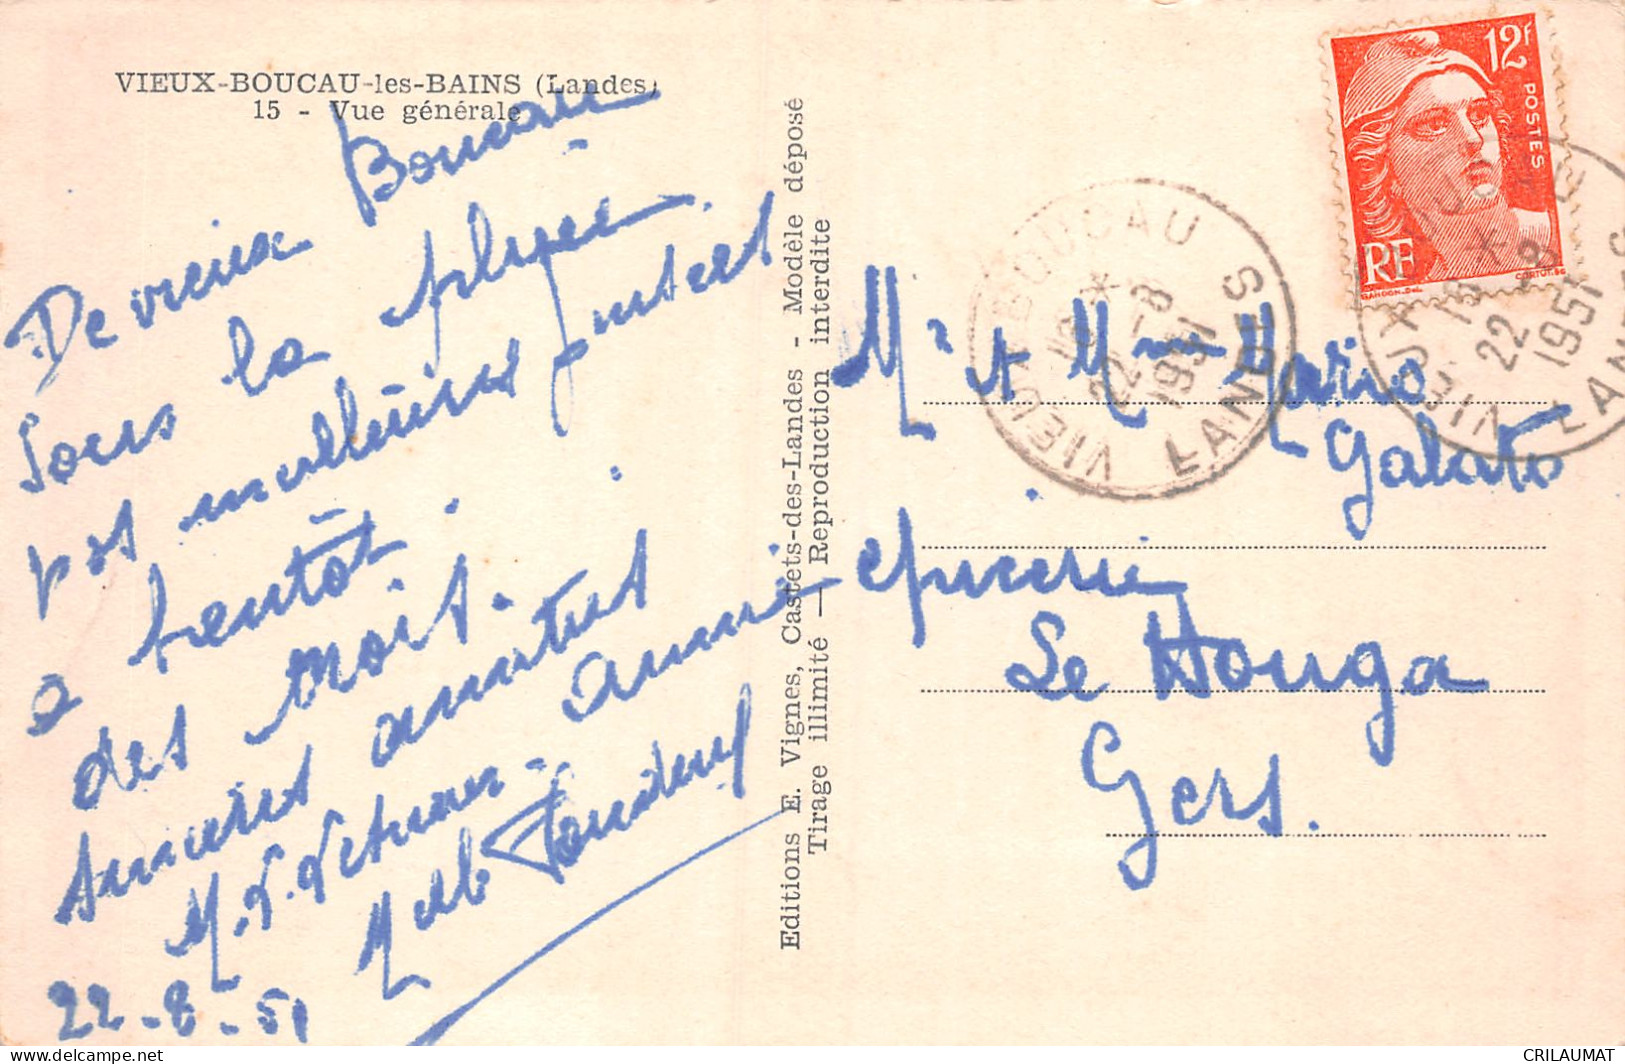 VIEUX-BOUCAU-les-BAINS (Landes)
15 - Vue générale
De vieux Boucau
Sous la pluie
pas meilleures
a bientôt
des trois.
Sincères amitiés
Annie
22-8-51
Editions E. Vignes, Castets-des-Landes - Modèle déposé
Tirage illimité — Reproduction interdite
12F
POSTES
RF
VIEUX-BOUCAU
*
22-8
1951
LANDES
VIEUX-BOUCAU
*
22-8
1951
LANDES
Mr et Mme Mario
Galato
epicerie
Le Houga
Gers.
CRILAUMAT